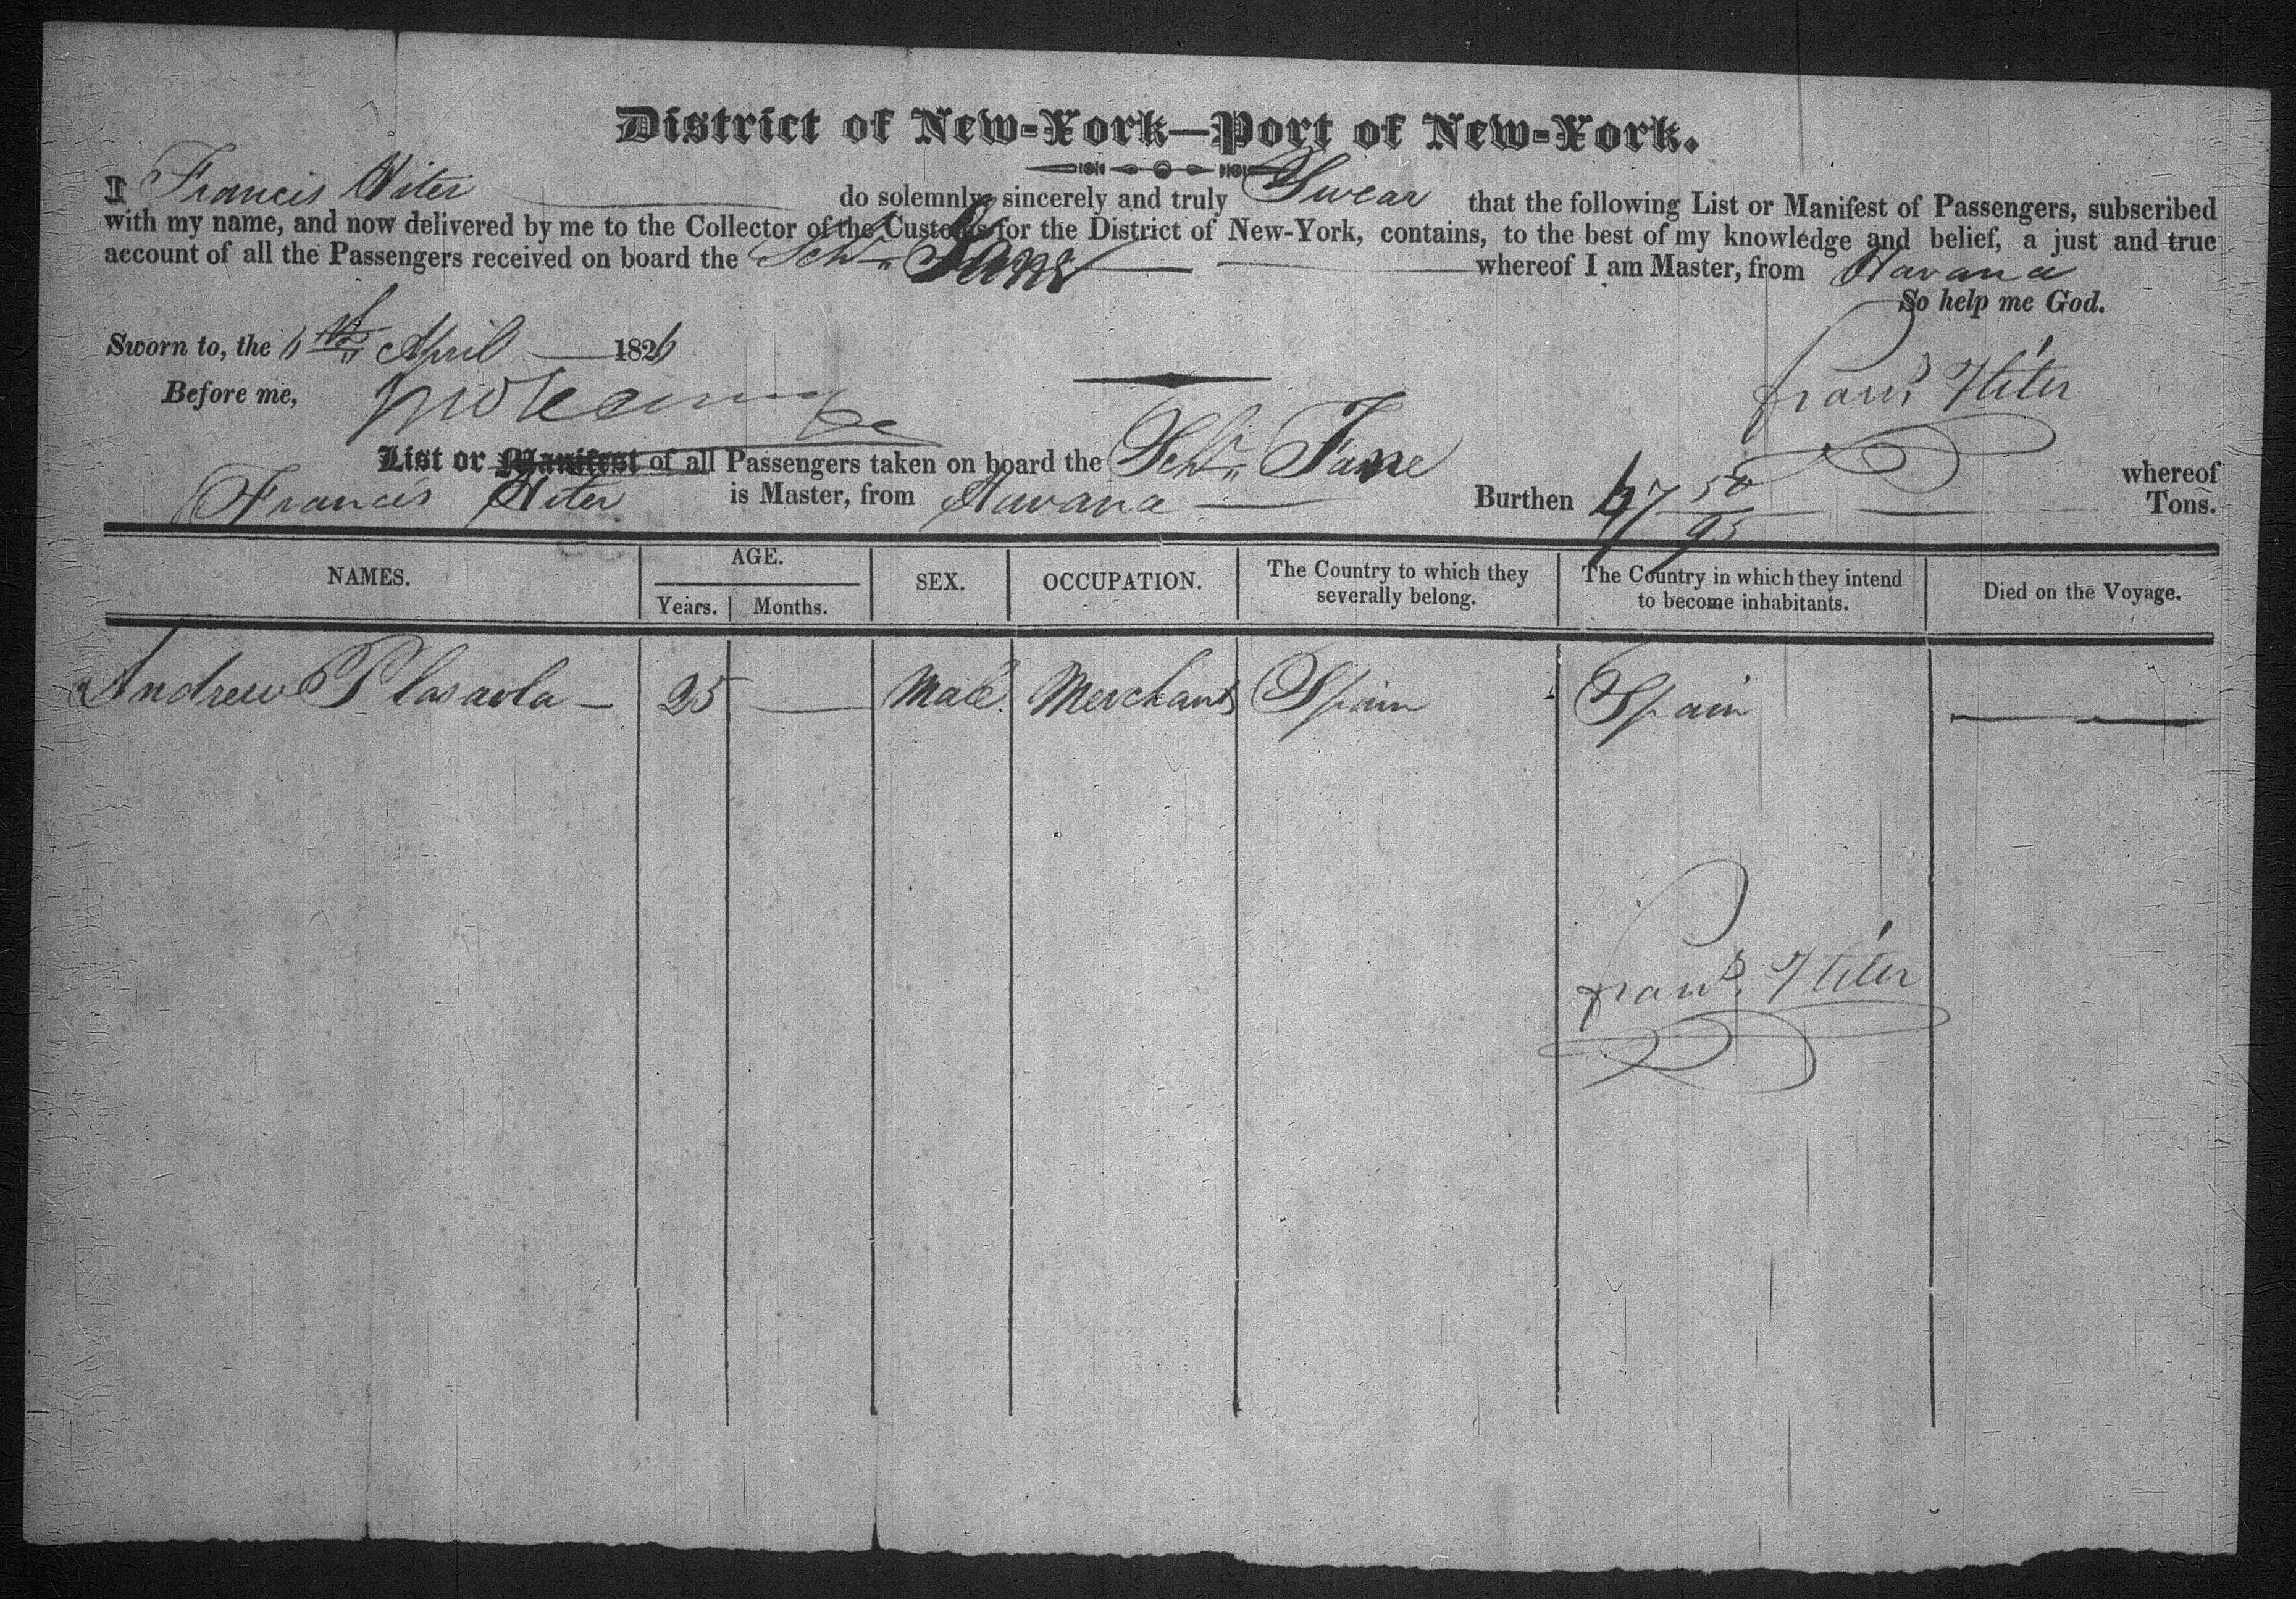 District of New-York—Port of New-York.
I Francis Hiter do solemnly, sincerely and truly Swear that the following List or Manifest of Passengers, subscribed
with my name, and now delivered by me to the Collector of the Customs for the District of New-York, contains, to the best of my knowledge and belief, a just and true
account of all the Passengers received on board the Schr Jane whereof I am Master, from Havana
So help me God.
Sworn to, the 6th April 1826
Before me,
Frans Hiter
List or Manifest of all Passengers taken on board the Schr Jane whereof
Francis Hiter is Master, from Havana Burthen 67 50/95 Tons.
NAMES. AGE. SEX. OCCUPATION. The Country to which they severally belong. The Country in which they intend to become inhabitants. Died on the Voyage.
Years. Months.
Andrew Plasaola — 25 — Male Merchant Spain Spain —
Frans Hiter